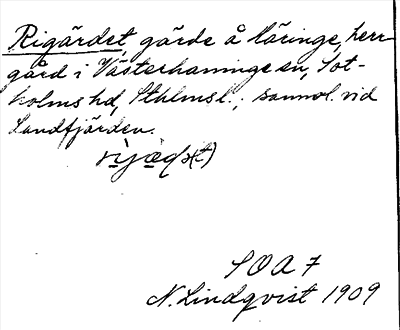 Rigärdet, gärde å Häringe, herr-
gård i Västerhaninge sn, Sot-
holms hd, Sthlmsl.; sannol. vid
Landfjärden.
SOA 7
N. Lindqvist 1909